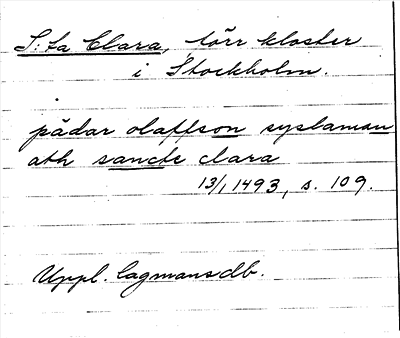 S:ta Clara, törr kloster
i Stockholm.
pädar olaffson syslaman
ath sancte clara
13/1 1493, s. 109.
Uppl. lagmansdb.